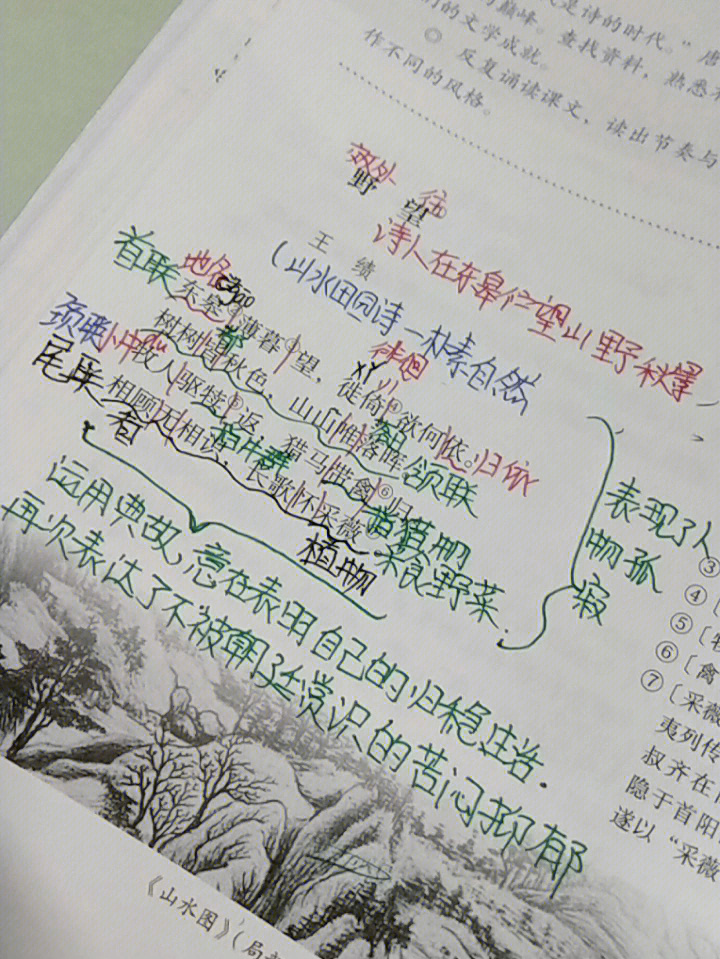 是诗的时代。”唐
的巅峰。查找资料,熟悉
的文学成就。
◎ 反复诵读课文,读出节奏与
作不同的风格。
郊外
野望
诗人在东皋伫望山野秋景
王绩
(山水田园诗一朴素自然
首联
地名
gao
东皋薄暮望,徙倚欲何依。
xǐ yǐ
徘徊
归依
颈联
都
树树皆秋色,山山惟落晖。
颔联
小牛
牧人驱犊返,猎马带禽归。
尾联
相顾无相识,长歌怀采薇。
看
植物
采食野菜.
表现了人
物孤
寂
运用典故,意在表明自己的归稳生活.
再次表达了不被朝廷赏识的苦闷抑郁
③
④〔
⑤〔
⑥〔禽
⑦〔采薇
夷列传
叔齐在
隐于首阳
遂以“采薇
《山水图》(局